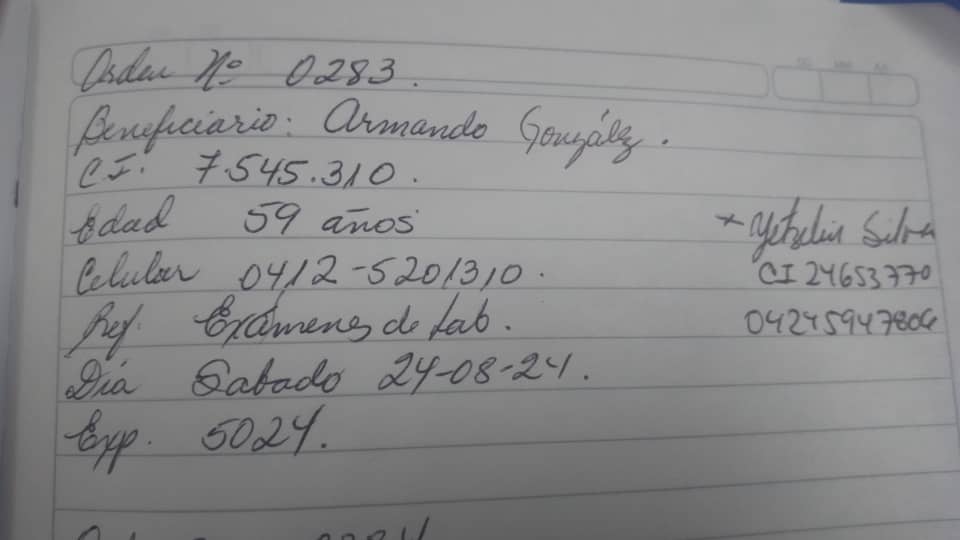 Orden Nº 0283.
Beneficiario: Armando González.
C.I. 7.545.310.
Edad 59 años
Celular 0412-5201310.
Ref. Exámenes de Lab.
Día Sabado 24-08-24.
Exp. 5024.
* Yetzelin Silva
CI 24653770
04245947806